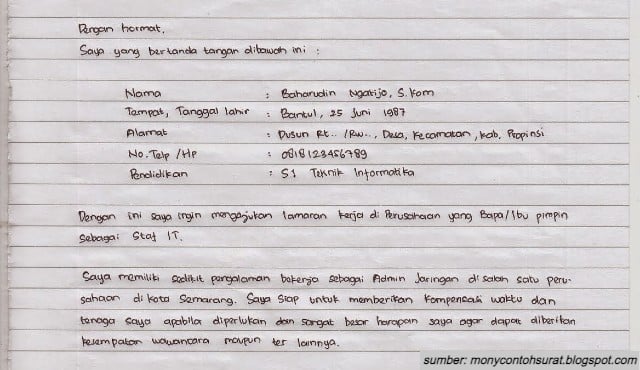 Dengan hormat,
Saya yang bertanda tangan dibawah ini :
Nama : Baharudin Ngatijo, S.Kom
Tempat, Tanggal lahir : Bantul, 25 Juni 1987
Alamat : Dusun Rt.. /Rw.., Desa, Kecamatan, Kab, Propinsi
No. Telp /Hp : 0818123456789
Pendidikan : S1 Teknik Informatika
Dengan ini saya ingin mengajukan lamaran kerja di Perusahaan yang Bapa/Ibu pimpin
sebagai Staf IT.
Saya memiliki sedikit pengalaman bekerja sebagai Admin Jaringan di salah satu peru-
sahaan di kota Semarang. Saya siap untuk memberikan kompensasi waktu dan
tenaga saya apabila diperlukan dan sangat besar harapan saya agar dapat diberikan
kesempatan wawancara maupun tes lainnya.
sumber: monycontohsurat.blogspot.com